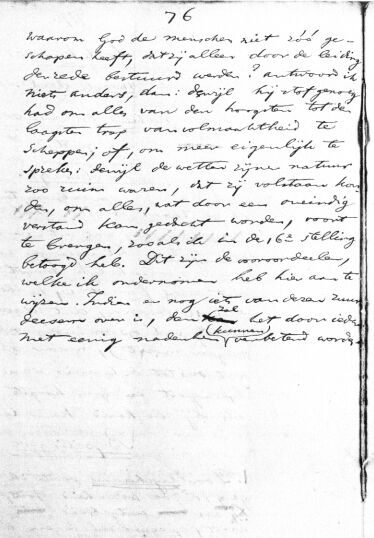 76
waarom God de menschen niet zóó ge-
schapen heeft, dat zij alleen door de leiding
der rede bestuurd werden? antwoord ik
niets anders, dan: dewijl hij stof genoeg
had om alles van den hoogsten tot den
laagsten trap van volmaaktheid te
scheppen; of, om meer eigenlijk te
spreken: dewijl de wetten zijner natuur
zoo ruim waren, dat zij volstaan kon
den, om alles, wat door een oneindig
verstand kan gedacht worden, voort
te brengen, zooals ik in de 16e stelling
betoogd heb. Dit zijn de vooroordeelen,
welke ik ondernomen heb hier aan te
wijzen. Indien er nog iets van dezen zuur
deesem over is, dan zal het door ieder
met eenig nadenken (kunnen) verbeterd worden